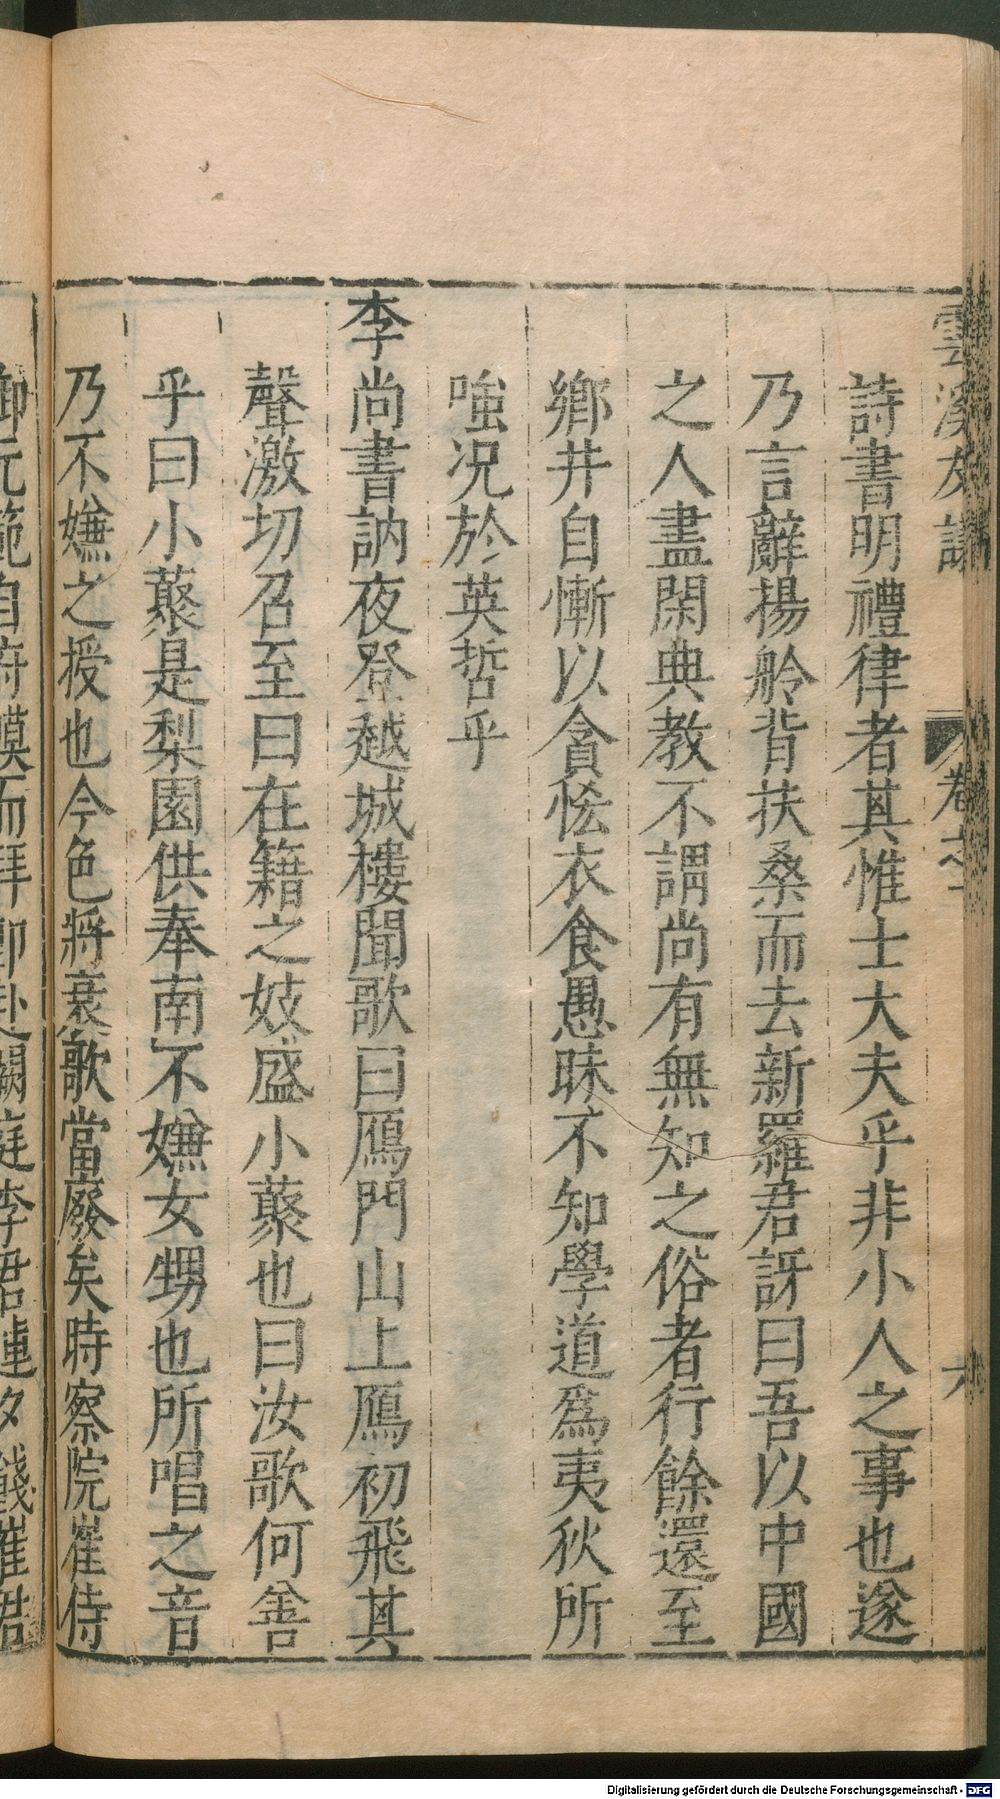 雲溪友議 卷之
詩書明禮律者其惟士大夫乎非小人之事也遂
乃言辭揚舲背扶桑而去新羅君訝曰吾以中國
之人盡閑典教不謂尚有無知之俗者行餘還至
鄉井自慚以貪恡衣食愚昧不知學道爲夷狄所
嗤况於英哲乎
李尚書訥夜登越城樓聞歌曰鴈門山上鴈初飛其
聲激切召至曰在籍之妓盛小藂也曰汝歌何善
乎曰小藂是梨園供奉南不嫌女甥也所唱之音
乃不嫌之授也今色將衰歌當廢矣時察院崔侍
御元範自府幙而拜卽赴闕庭李君連夕餞崔君
Digitalisierung gefördert durch die Deutsche Forschungsgemeinschaft - DFG